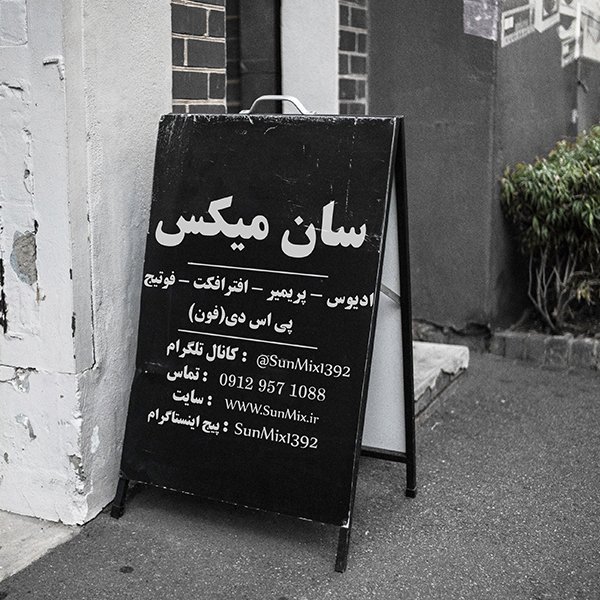 سان میکس
ادیوس – پریمیر – افترافکت – فوتیج
پی اس دی(فون)
کانال تلگرام : @SunMix1392
تماس : 0912 957 1088
سایت : WWW.SunMix.ir
پیج اینستاگرام : SunMix1392